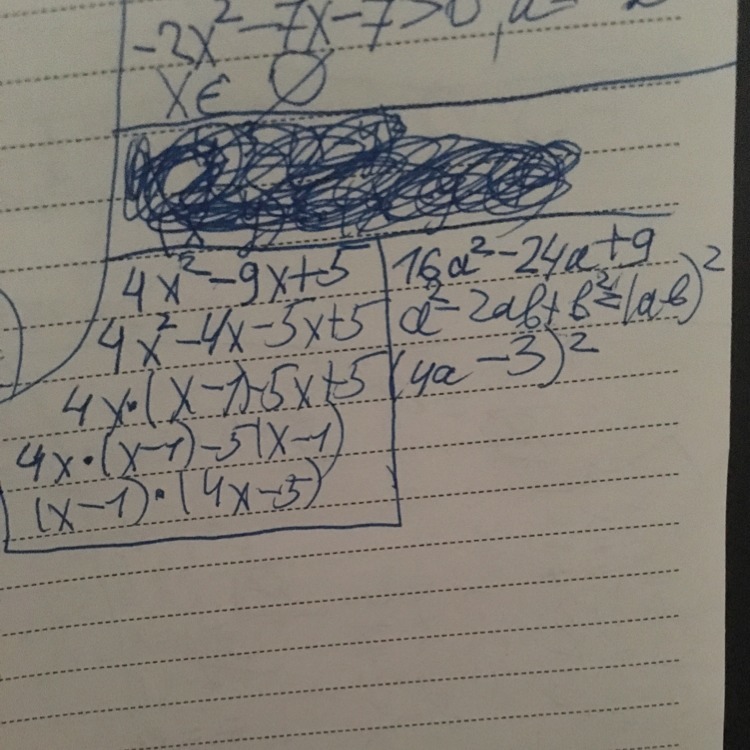 -3x² -7x-7>0, a=
X ∈ ∅
4x²-9x+5
4x²-4x-5x+5
4x·(x-1)-5x+5
4x·(x-1)-5(x-1)
(x-1)·(4x-5)
16a²-24a+9
a²-2ab+b²=(ab)²
(4a-3)²